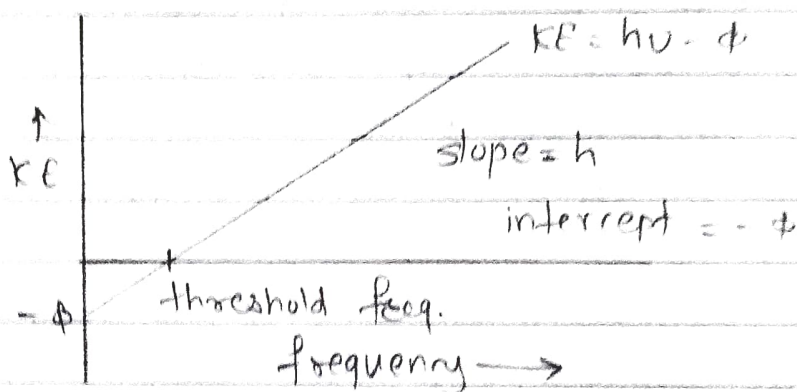 KE = hν - ϕ
↑
KE
slope = h
intercept = - ϕ
- ϕ
threshold freq.
frequency →